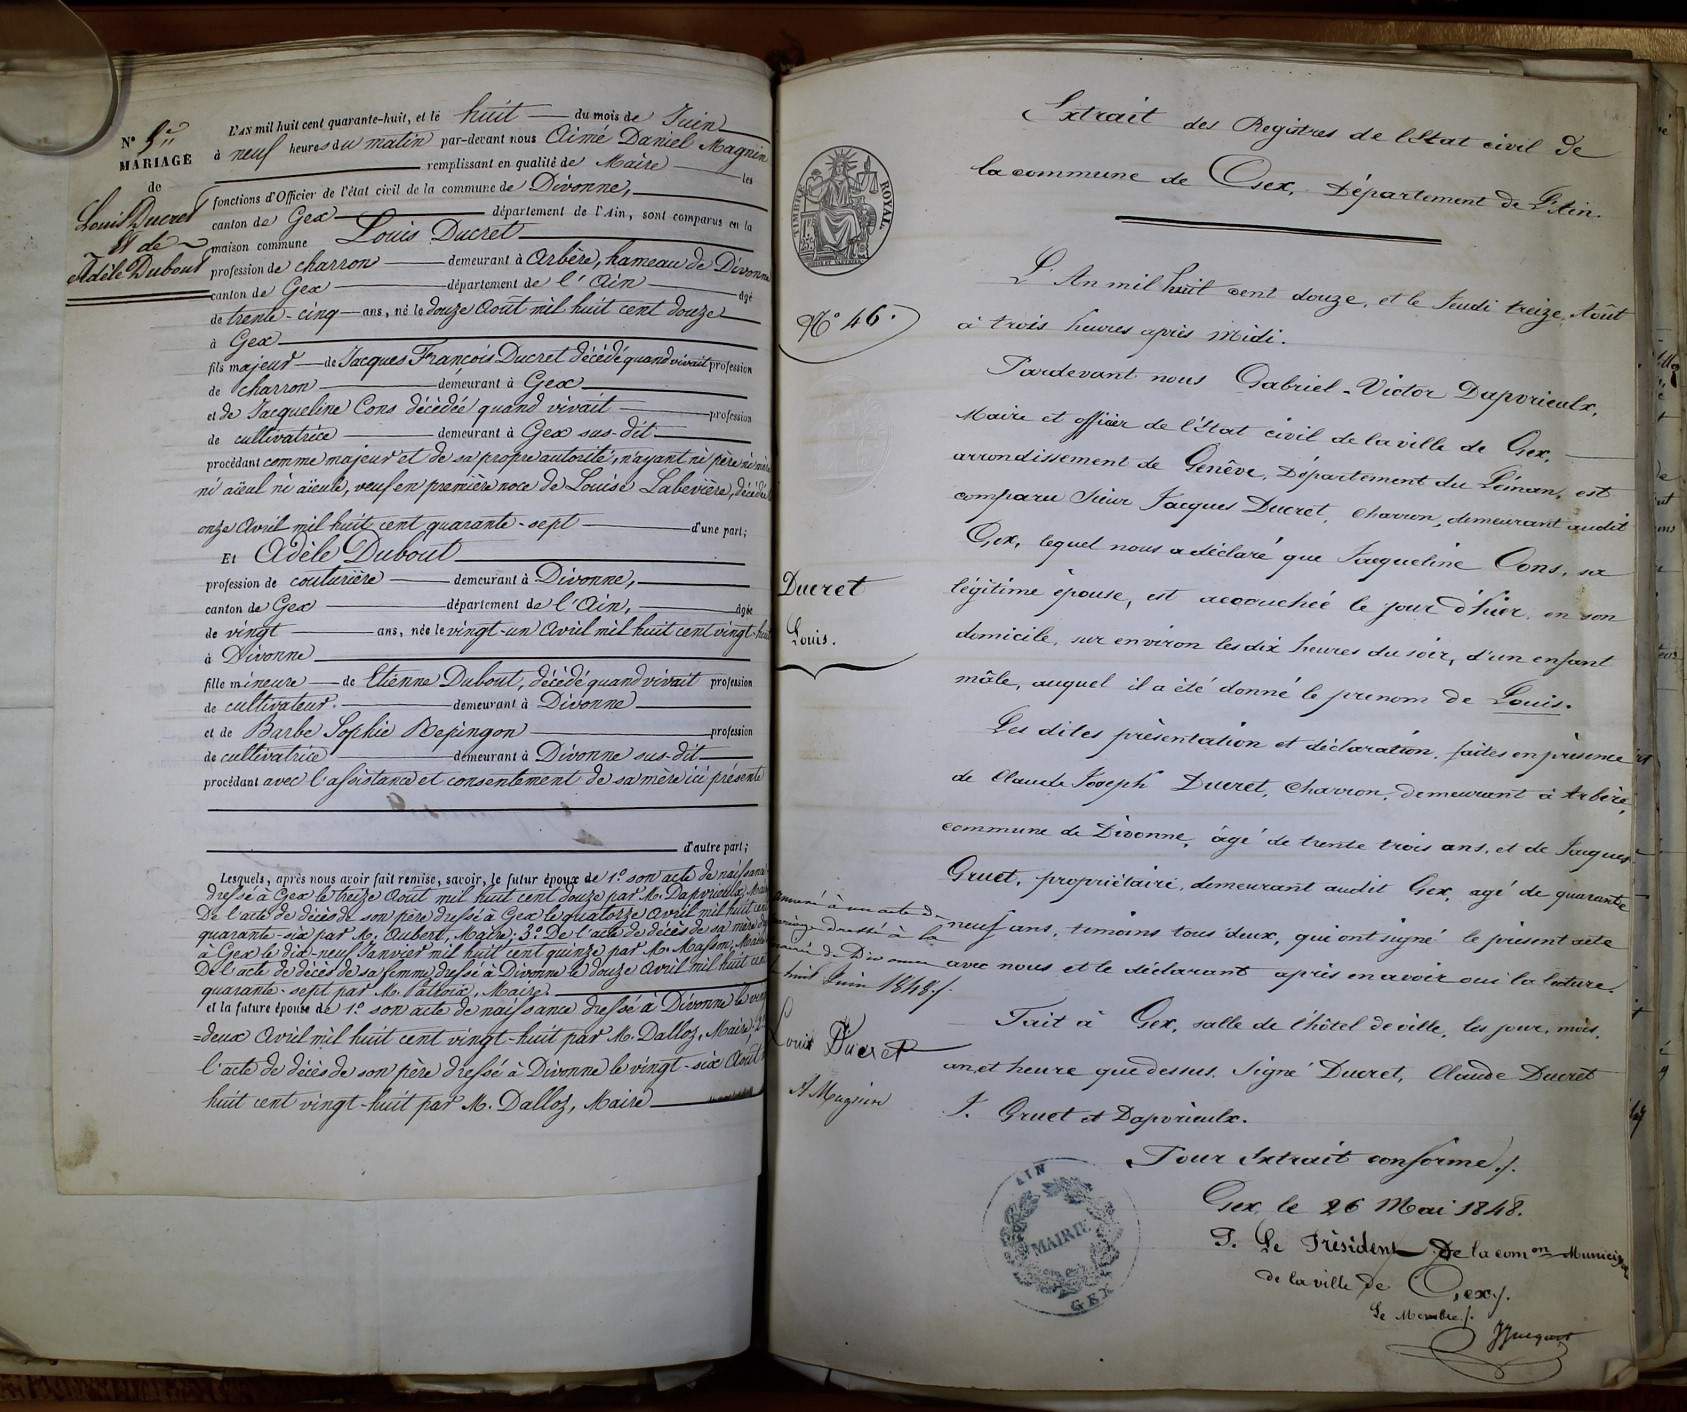 N° 9.e
MARIAGE
de
Louis Ducret
& de
Adèle Dubout
L'AN mil huit cent quarante-huit, et le huit du mois de Juin
à neuf heures du matin par-devant nous Aimé Daniel Magnin
remplissant en qualité de Maire les
fonctions d'Officier de l'état civil de la commune de Divonne,
canton de Gex département de l'Ain, sont comparus en la
maison commune Louis Ducret
profession de charron demeurant à Arbère, hameau de Divonne
canton de Gex département de l'Ain âgé
de trente-cinq ans, né le douze Aout mil huit cent douze
à Gex
fils majeur de Jacques François Ducret décédé quand vivait profession
de charron demeurant à Gex
et de Jacqueline Cons décédée quand vivait profession
de cultivatrice demeurant à Gex sus-dit
procédant comme majeur et de sa propre autorité, n'ayant ni père ni mère
ni aïeul ni aïeule, veuf en première noce de Louise Labevière, décédée
onze Avril mil huit cent quarante-sept d'une part;
Et Adèle Dubout
profession de couturière demeurant à Divonne,
canton de Gex département de l'Ain, âgée
de vingt ans, née le vingt-un Avril mil huit cent vingt-huit
à Divonne
fille mineure de Etienne Dubout, décédé quand vivait profession
de cultivateur demeurant à Divonne
et de Barbe Sophie Bepingon profession
de cultivatrice demeurant à Divonne sus-dit
procédant avec l'assistance et consentement de sa mère ici présente
d'autre part;
Lesquels, après nous avoir fait remise, savoir, le futur époux de 1° son acte de naissance
dressé à Gex le treize Aout mil huit cent douze par M. Daprieulx, Maire
De l'acte de décès de son père dressé à Gex le quatorze Avril mil huit cent
quarante-six par M. Aubert, Maire; 3° De l'acte de décès de sa mère
à Gex le dix-neuf Janvier mil huit cent quinze par M. Masson, Maire
De l'acte de décès de sa femme dressé à Divonne le douze Avril mil huit cent
quarante-sept par M. Patroix, Maire.
et la future épouse de 1° son acte de naissance dressé à Divonne le vingt
=deux Avril mil huit cent vingt-huit par M. Dalloz, Maire; 2°
l'acte de décès de son père dressé à Divonne le vingt-six Aout
huit cent vingt-huit par M. Dalloz, Maire
Extrait des Registres de l'Etat civil de
la commune de Gex, Département de l'Ain.
TIMBRE ROYAL
N° 46.
L'An mil huit cent douze, et le Jeudi treize Août
à trois heures après midi.
Pardevant nous Gabriel-Victor Dapvrieulx,
Maire et officier de l'état civil de la ville de Gex,
arrondissement de Genêve, Département du Léman, est
comparu Sieur Jacques Ducret, charron, demeurant audit
Gex, lequel nous a déclaré que Jacqueline Cons, sa
légitime épouse, est accouchée le jour d'hier, en son
domicile, sur environ les dix heures du soir, d'un enfant
mâle, auquel il a été donné le prenom de Louis.
Ducret
Louis.
Les dites présentation et déclaration, faites en présence
de Claude Joseph Ducret, charron, demeurant à Arbère,
commune de Divonne, âgé de trente trois ans, et de Jacques
Gruet, propriétaire, demeurant audit Gex, agé de quarante
neuf ans, témoins tous deux, qui ont signé le présent acte
avec nous et le déclarant après en avoir oui la lecture.
Fait à Gex, salle de l'hôtel de ville, les jour, mois,
an, et heure que dessus. Signé Ducret, Claude Ducret
J. Gruet et Dapvrieulx.
Annexé à un acte de
mariage dressé à la
mairie de Divonne
le huit Juin 1848./.
Louis Ducret
A Magnin
Pour Extrait conforme./.
Gex, le 26 Mai 1848.
P. Le Président De la com.on Municip
de la ville de Gex/.
Le Membre/.
AIN
MAIRIE
GEX